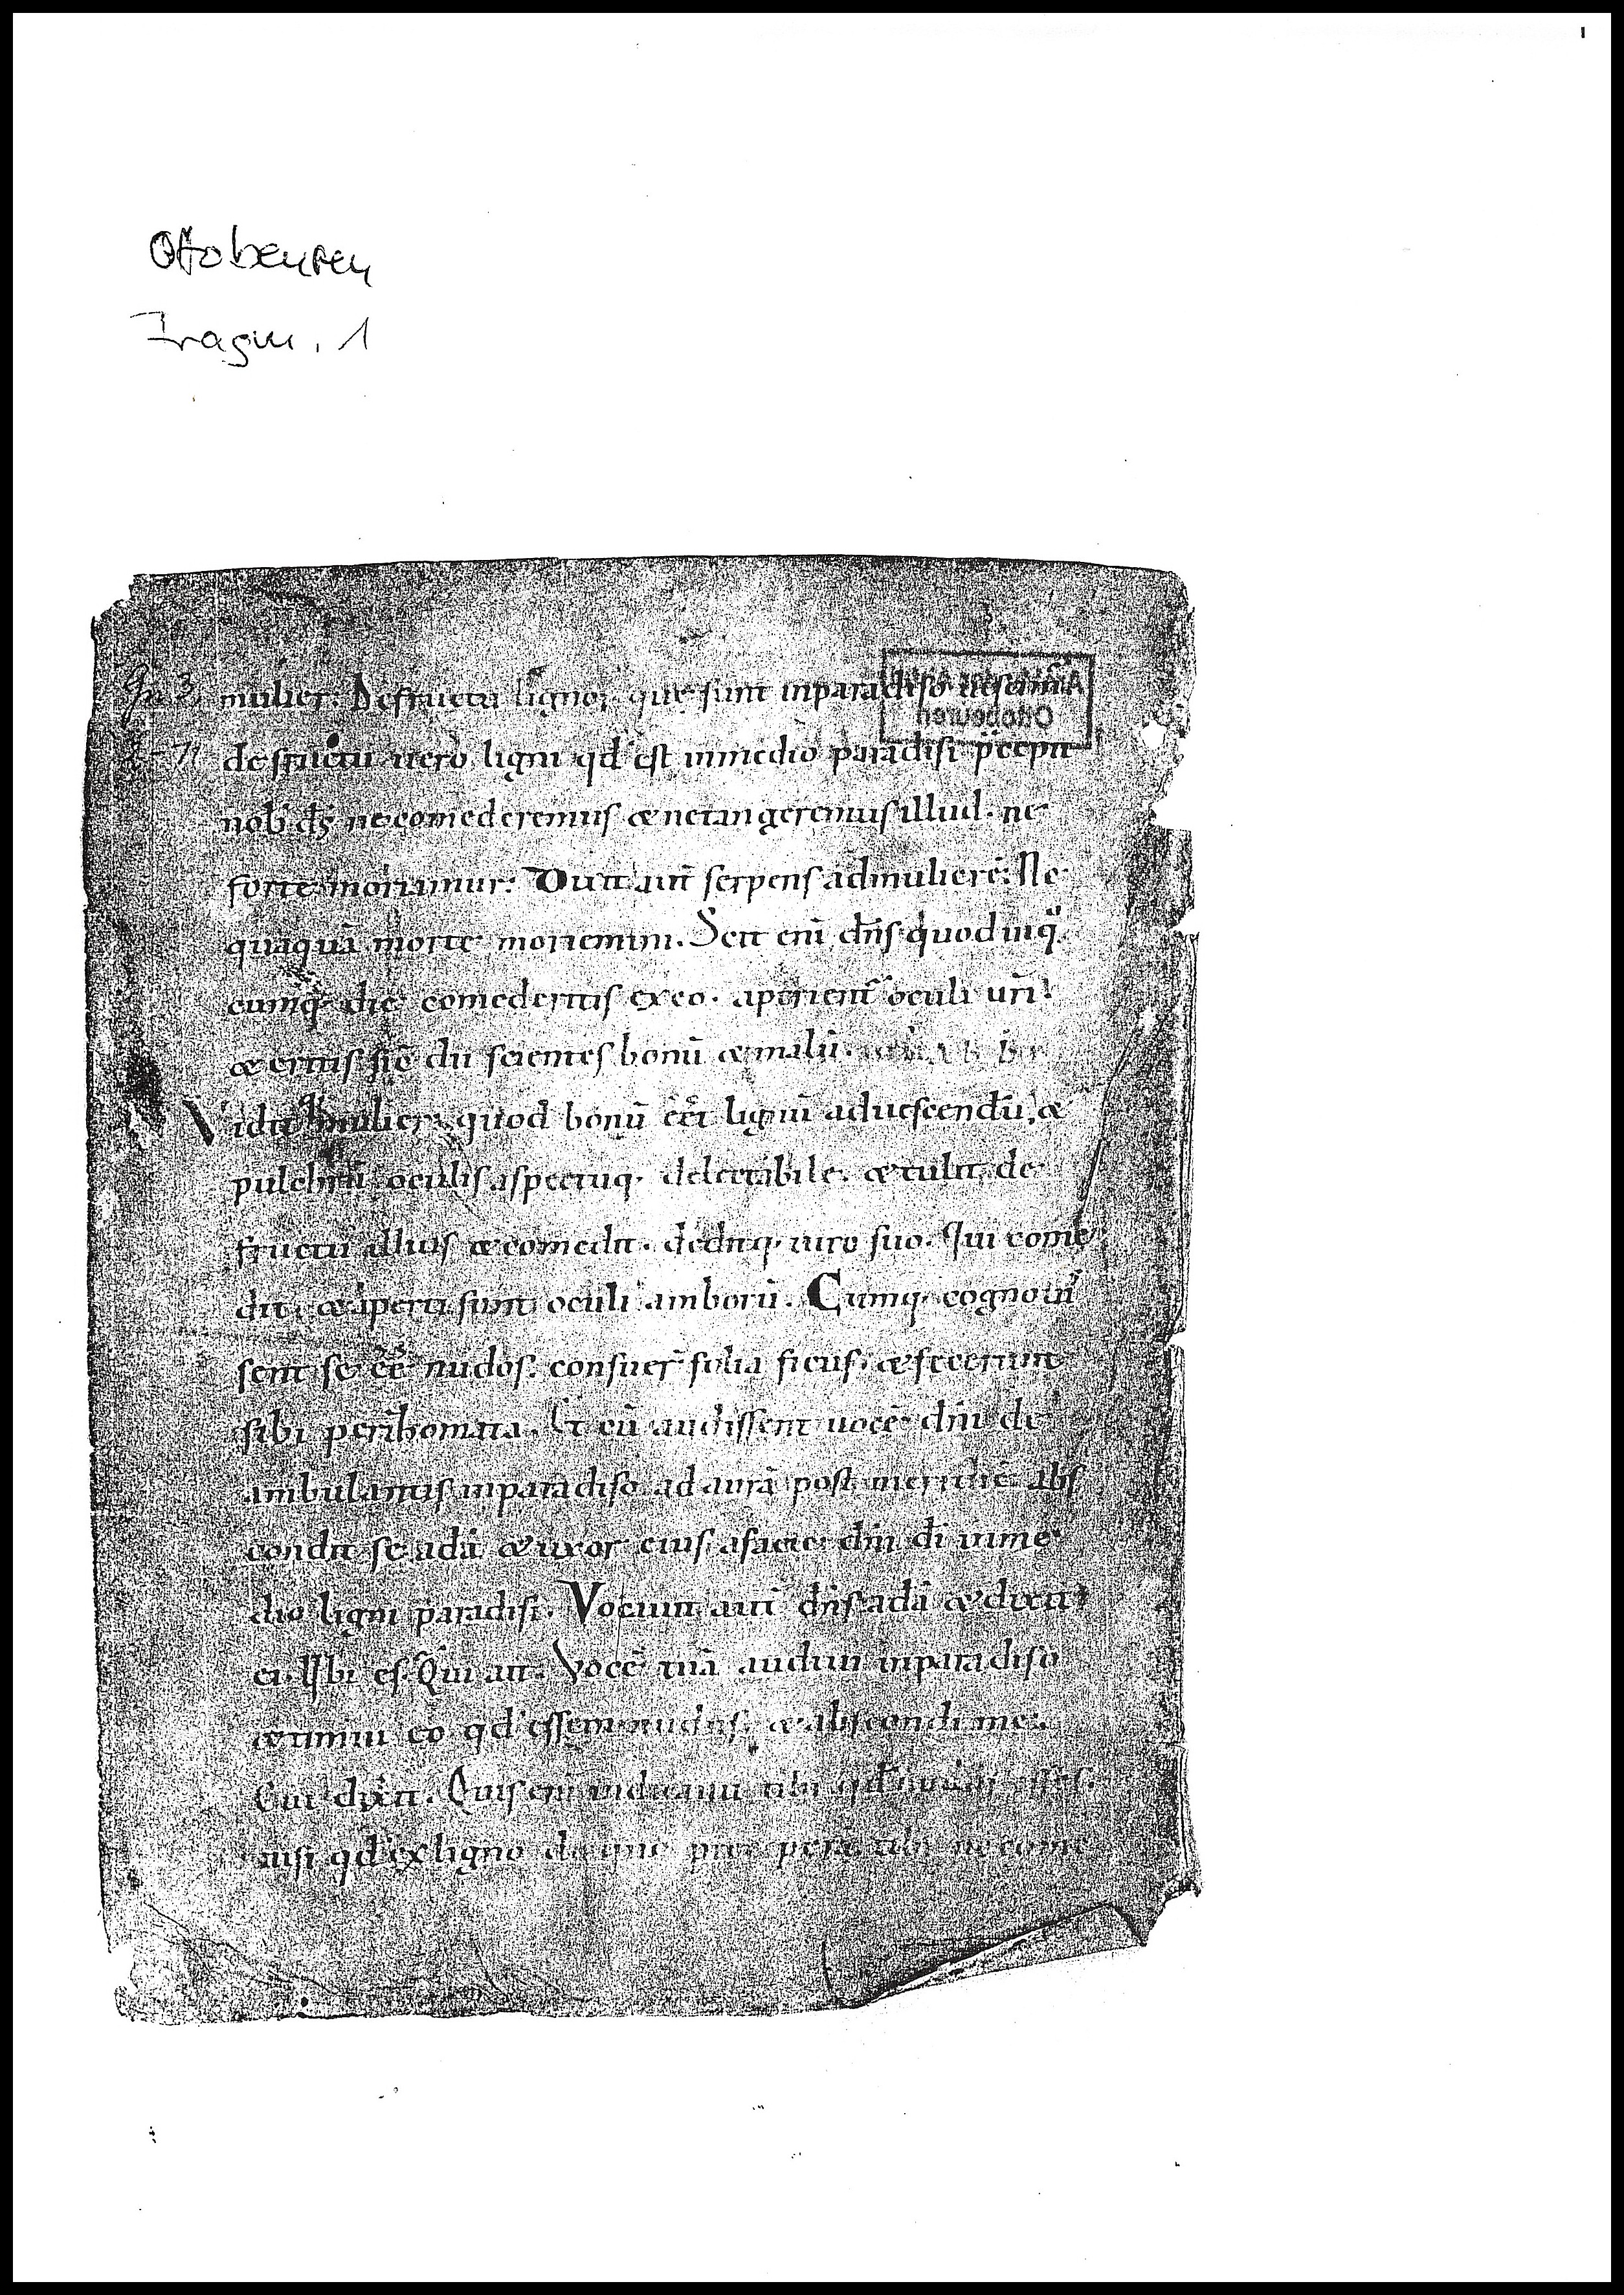 1
Ottobeuren
Fragm. 1
Gn 3
mulier. De fructu lignoꝝ que sunt inparadiso uescim̄
de fructu uero ligni qd̕ est inmedio paradisi p̄cepit
nob̕ d̄s necomederemus & netangeremusillud. ne
forte moriamur. Dixit aut̄ serpens admulierē. Ne
quaquā morte moriemini. Scit eni d̄ns quod inq
cumq; die comederitis exeo. aperient̄ oculi ur̄i.
& eritis sic̄ dii scientes bonū & malū.
Vidit mulier quod bonū eēt lignū aduescendū, &
pulchrū oculis aspectuq; delectabile. & tulit de
fructu illius & comedit. deditq; uiro suo. Qui come
dit. & aperti sunt oculi amborū. Cumq; cognouis
sent se eē nudos. consuer̄ folia ficus. & fecerunt
sibi perihomata. Et cū audissent uocē dn̄i dei
ambulantis inparadiso ad aurā post meridiē abs
condit se adā & uxor eius afacie dn̄i di inme
dio ligni paradisi. Vocauit aut̄ d̄ns adā & dixit
ei. Ubi es. Qui ait. Vocē tuā audiui inparadiso
& timui eo qd̕ essem nudus. & abscondi me.
Cui dixit. Quis eni indicauit tibi qd̕ nudus esses.
nisi qd̕ exligno de quo p̄ce perā tibi ne come
Ottobeuren